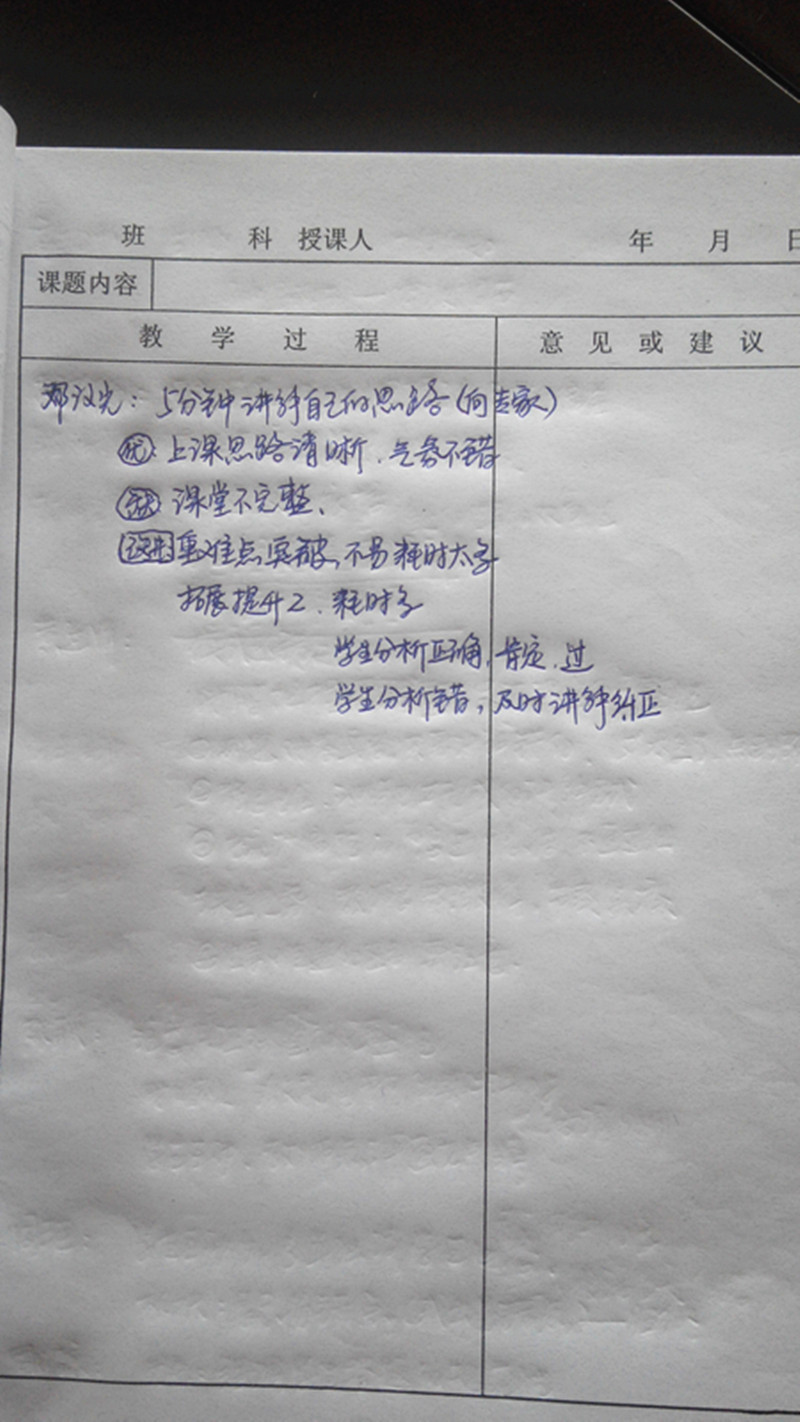 班 科 授课人 年 月 日
课题内容
教 学 过 程 意 见 或 建 议
邓议光：5分钟讲解自己的思路（向专家）
优：上课思路清晰．气氛不错
缺 课堂不完整、
议课 重难点突破、不易耗时太多
拓展提升2．耗时多
学生分析正确，肯定．过
学生分析错，及时讲解纠正